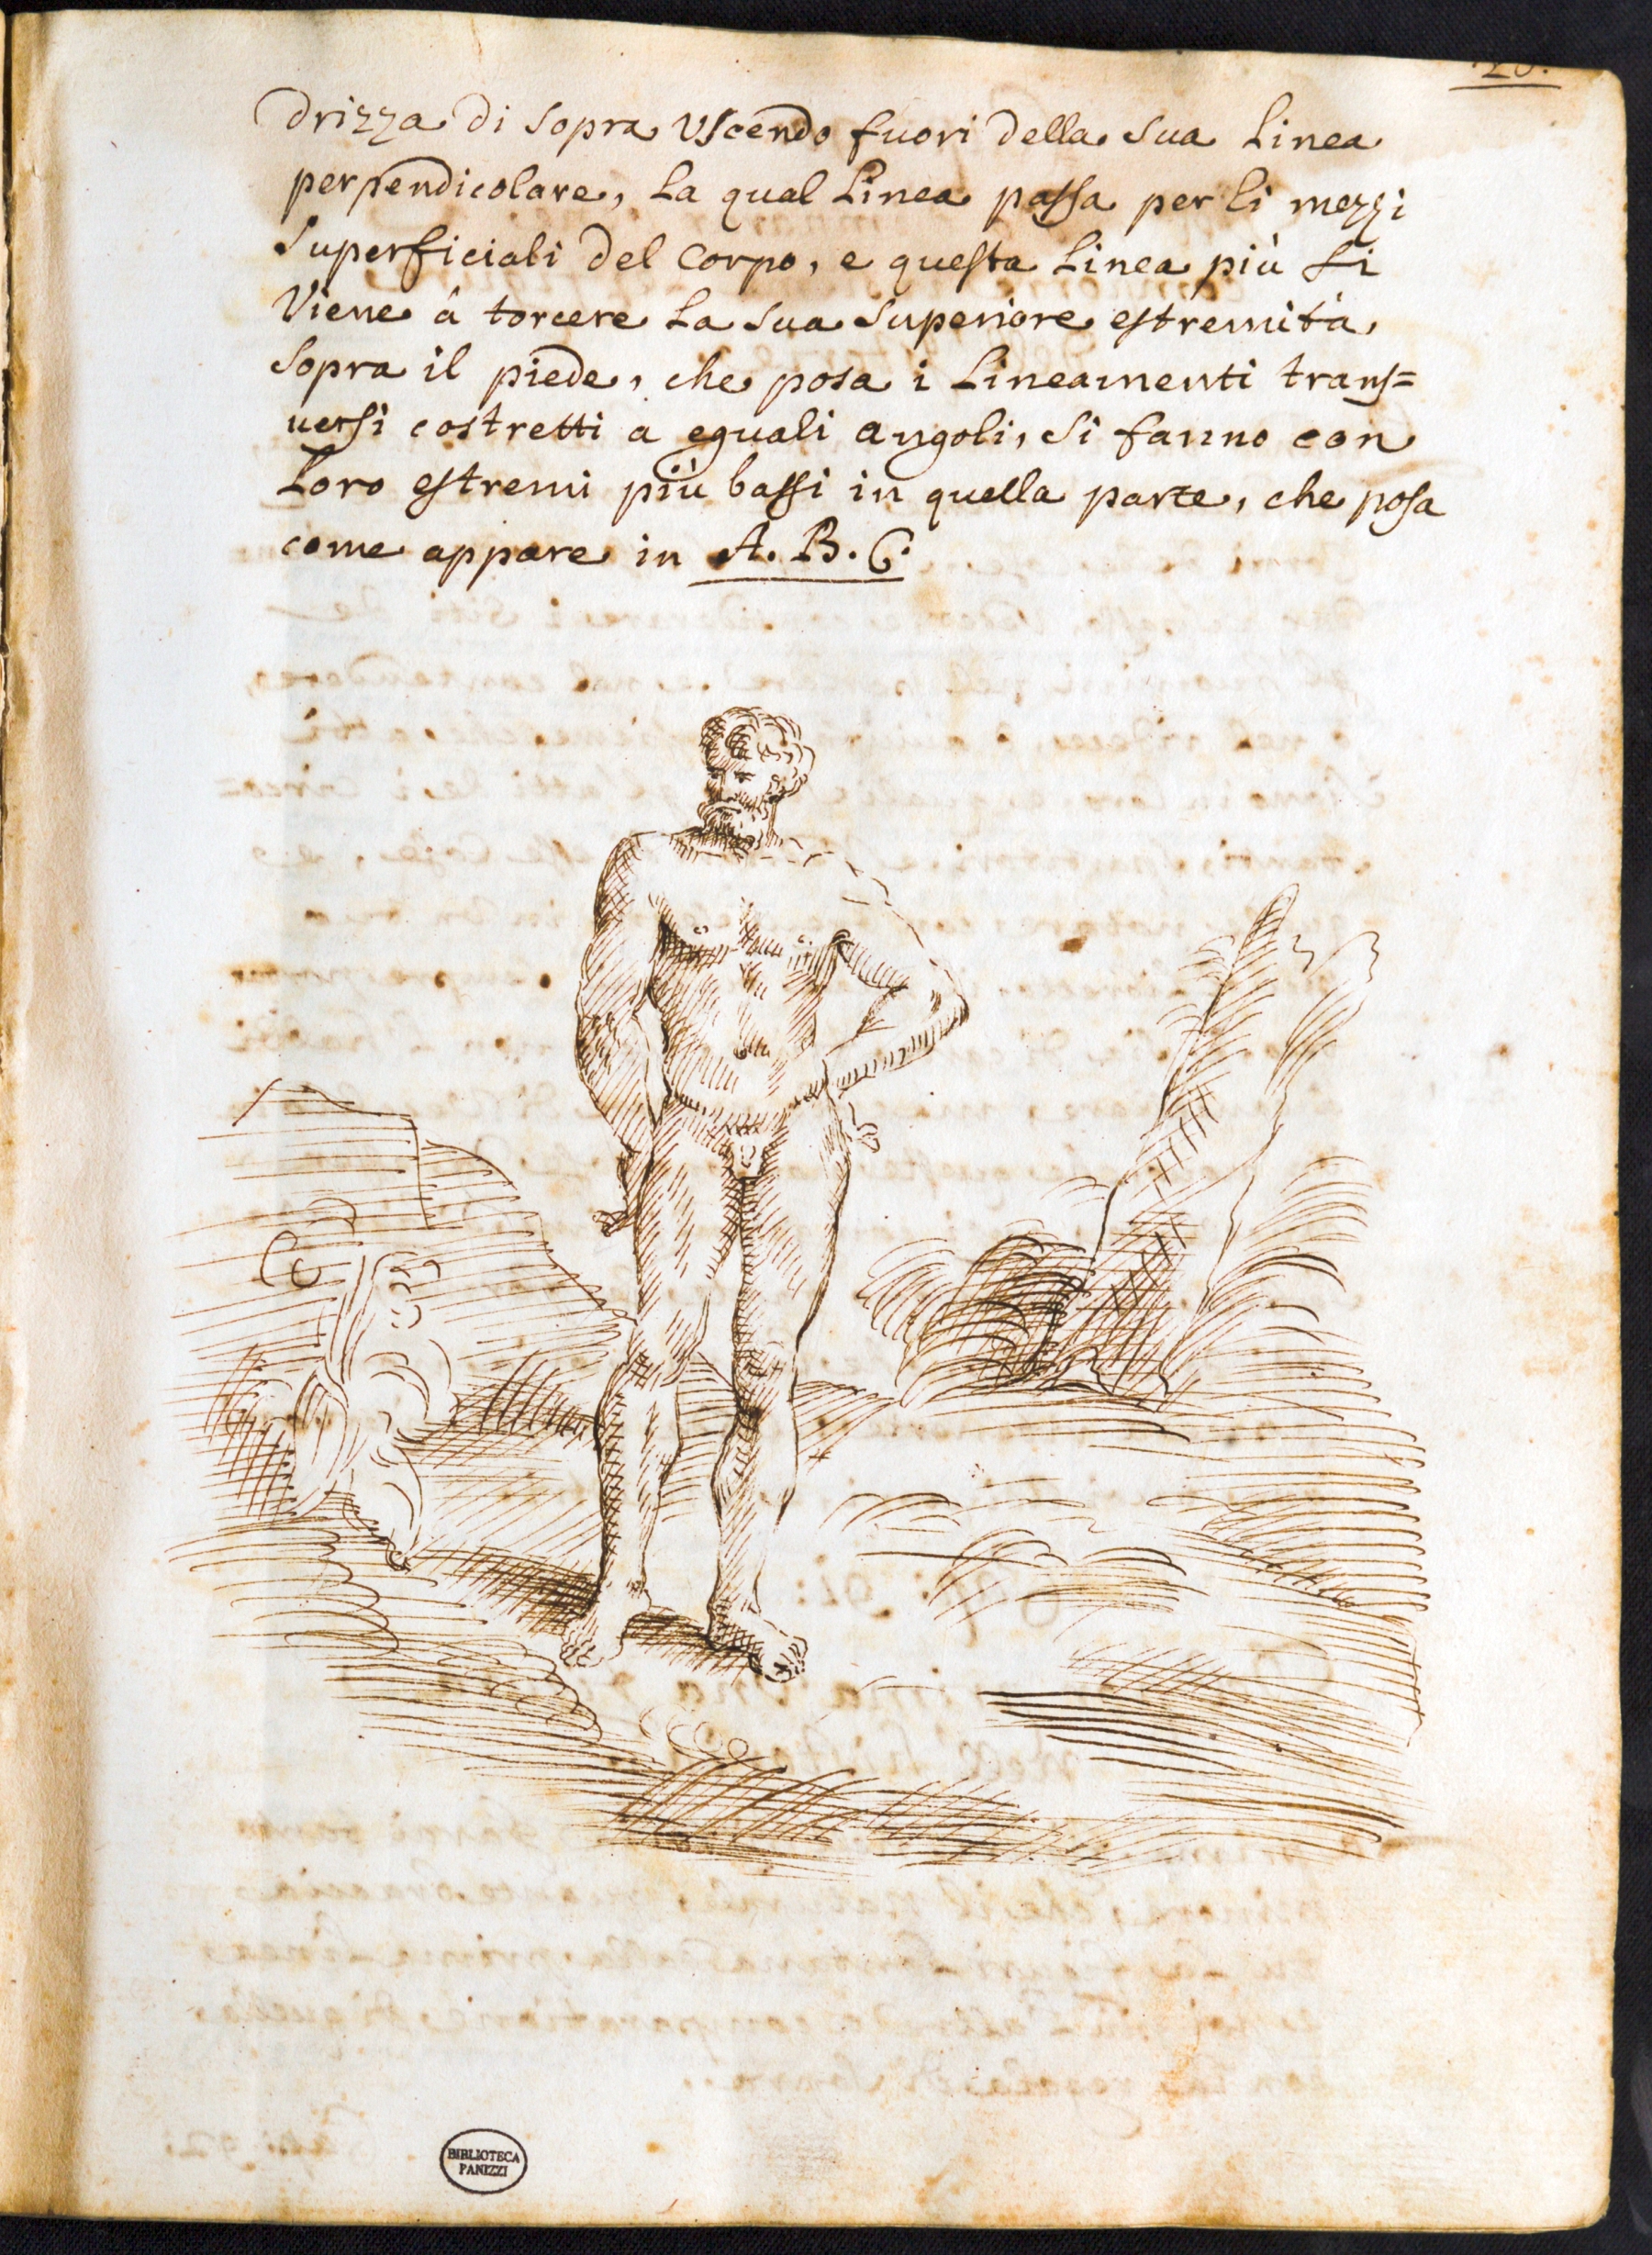 drizza di sopra uscendo fuori della sua Linea
perpendicolare, La qual Linea passa per li mezzi
superficiali del Corpo, e questa Linea più si
Viene à torcere La sua superiore estremità,
sopra il piede, che posa i Lineamenti trans=
uersi costretti a eguali angoli, si fanno con
Loro estremi più bassi in quella parte, che posa
come appare in A. B. C.
BIBLIOTECA
PANIZZI